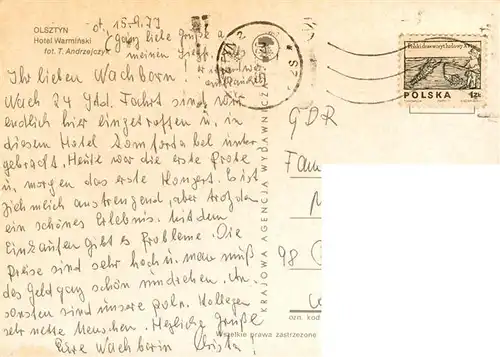 OLSZTYN
Hotel Warmiński
fot. T. Andrzejczyk
ot, 15.9.77
ganz liebe Grüße a
meinen
Ihr lieben Wachborn!
Nach 24 Std. Fahrt sind wir
endlich hier eingetroffen u. in
diesem Hotel komfortabel unter
gebracht. Heute war die erste Probe
u. morgen das erste Konzert. Es ist
ziemlich anstrengend, aber trotzdem
ein schönes Erlebnis. Mit dem
Einkaufen gibt es Probleme. Die
Preise sind sehr hoch u. man muß
das Geld ganz schön umdrehen. An-
sonsten sind unsere poln. Kollegen
sehr nette Menschen. Herzliche Grüße
Eure Wachborin Christa!
KRAJOWA AGENCJA WYDAWNICZA
POLSKA 1zł
GDR
Fam
98
ozn. kod
Wszelkie prawa zastrzeżone